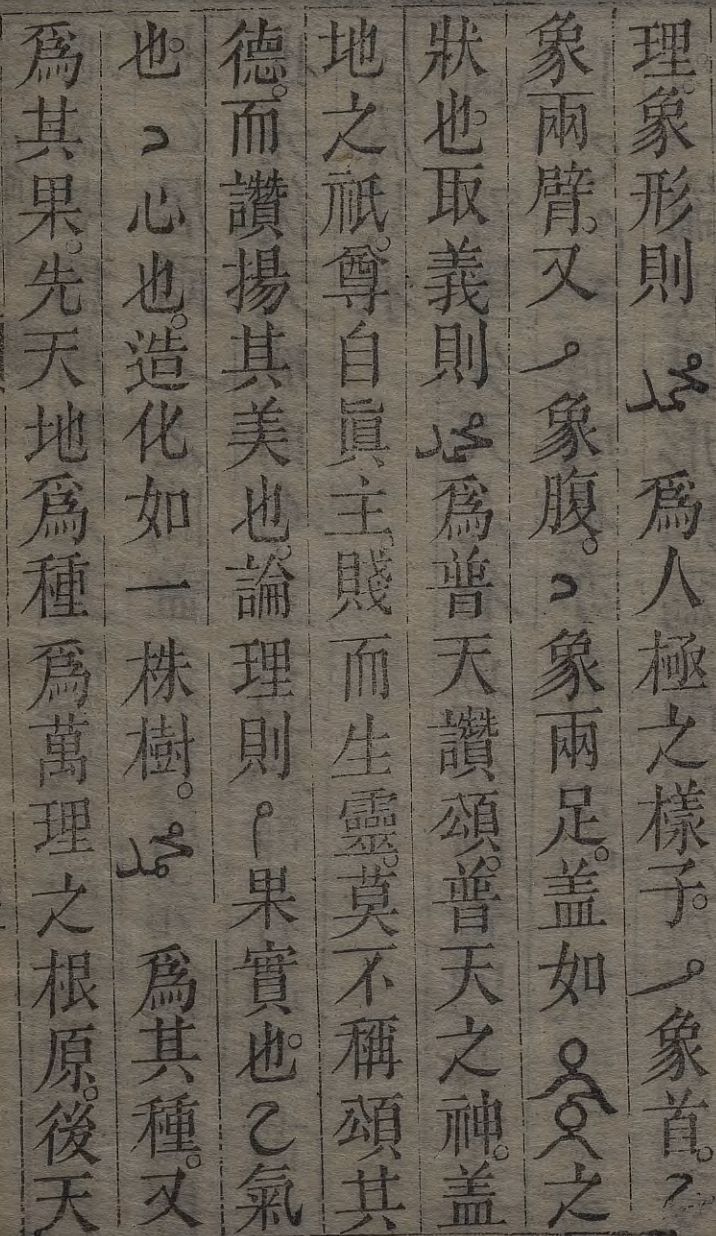 理。象形則 محمد 爲人極之樣子。م 象首。ح
象兩臂。又 م 象腹。د 象兩足。盖如之
狀也。取義則 محمد 爲普天讚頌。普天之神。盖
地之祇。尊自眞主。賤而生靈。莫不稱頌其
德。而讚揚其美也。論理則 م 果實也。ح 氣
也。د 心也。造化如一株樹。محمد 爲其種。又
爲其果。先天地爲種爲萬理之根原。後天